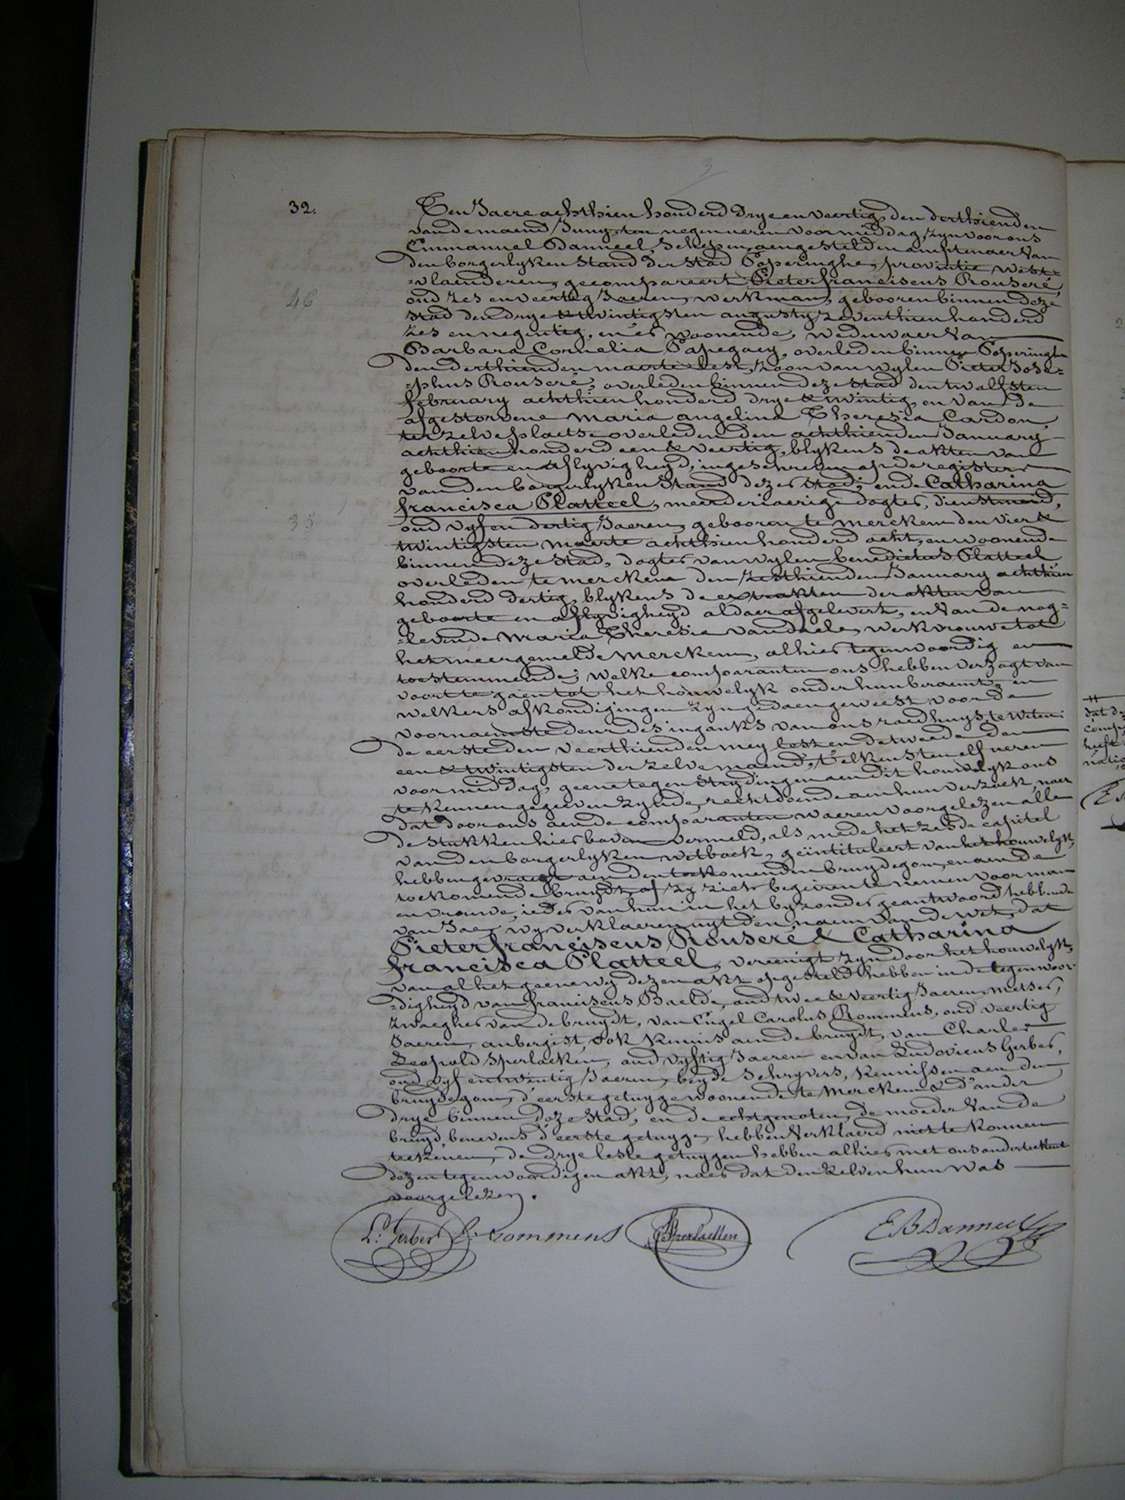 3
32.
Ten Jaere achthien honderd drye en veertig, den derthienden
van de maend Juny, ten negen uren voormiddag, zyn voor ons
Emmanuel Danneel, Schepen, aengestelden amptenaer van
den borgerlyken Stand der Stad Poperinghe, provintie west=
=vlaenderen, gecompareert Pieter franciscus Rouseré,
oud zes en veertig Jaeren, werkman, gebooren binnen deze
46
Stad den drye & twintigsten augusty zeventhien honderd
zes en negentig, en er woonende, weduwaer van
Barbara Cornelia Papegaey, overleden binnen Poperinghe
den derthienden maerte lest, zoon van wylen Pieter Jose=
=phus Rouseré, overleden binnen deze Stad den twalfsten
february achthien honderd drye & twintig, en van de
afgestorvene Maria angelina Theresia Cardon,
ter zelve plaetse overleden den achthienden January
achthien honderd een & veertig, blykens de akten van
geboorte en aflyvigheyd, ingeschreven op de registers
van den borgerlyken Stand dezer Stad; ende Catharina
francisca Platteel, meerderjaerige dogter, dienstmeid,
35
oud vyf en dertig Jaeren, gebooren te Merckem den vier &
twintigsten maerte achthien honderd acht, en woonende
binnen deze Stad, dogter van wylen benedictus Platteel
overleden te merckem den zesthienden January achthien
honderd dertig, blykens de extrakten der akten van
geboorte en aflyvigheyd aldaer afgelevert, en van de nog=
=levende Maria Theresia Vandaele, werkvrouwe tot
het meergemelde Merckem, alhier tegenwoordig en
toestemmende; welke comparanten ons hebben verzogt van
voort te gaen tot het houwelyk onder hun beraemt, en
welkers afkondigingen zyn gedaen geweest voor de
voornaemste deur des ingancks van ons raedhuys, te weten:
de eerste den veerthienden mey lest en de tweede den
een & twintigsten der zelve maend, telkens ten elf uren
voormiddag, geene tegenstrydingen aen dit houwelyk ons
te kennen gegeven zynde, rechtdoende aen hun verzoek, naer
dat door ons aen de comparanten waeren voorgelezen alle
de stukken hierboven vermeld, als mede het zesde capitel
van den borgerlyken wetboek, geïntituleert van het houwelyk,
hebben gevraegt aen den toekomenden bruydegom, en aen de
toekomende bruydt of zy zich begeeren te nemen voor man
en vrouwe, ieder van hun in het byzonder geantwoord hebbende
van Jae, wy verklaeren uyt den naem van de wet, dat
Pieter franciscus Rouseré & Catharina
francisca Platteel, vereenigt zyn door het houwelyk,
van al het geene wy dezen akt opgesteld hebben in de tegenwoor=
=digheyd van franciscus Baelde, oud twee & veertig Jaeren, metser,
zwaegher van de bruydt, van Engel Carolus Rommens, oud veertig
Jaeren, aubergist, ook kennis aen de bruydt, van Charles
Leopold Sperlaeken, oud vyftig Jaeren en van Ludovicus Gerber,
oud vyf en twintig Jaeren, beyde Schryvers, kennissen aen den
bruydegom, d'eerste getuyge woonende te Merckem & d'ander
drye binnen deze Stad, en de echtgenoten, de moeder van de
bruyd, benevens d'eerste getuyge, hebben verklaerd niet te konnen
teekenen, de drye leste getuygen hebben alhier met ons onderteekent
dezen tegenwoordigen akt, naer dat den zelven hun was
voorgelezen.
L. Gerber C. Rommens Sperlaeken E B Danneel
dat de